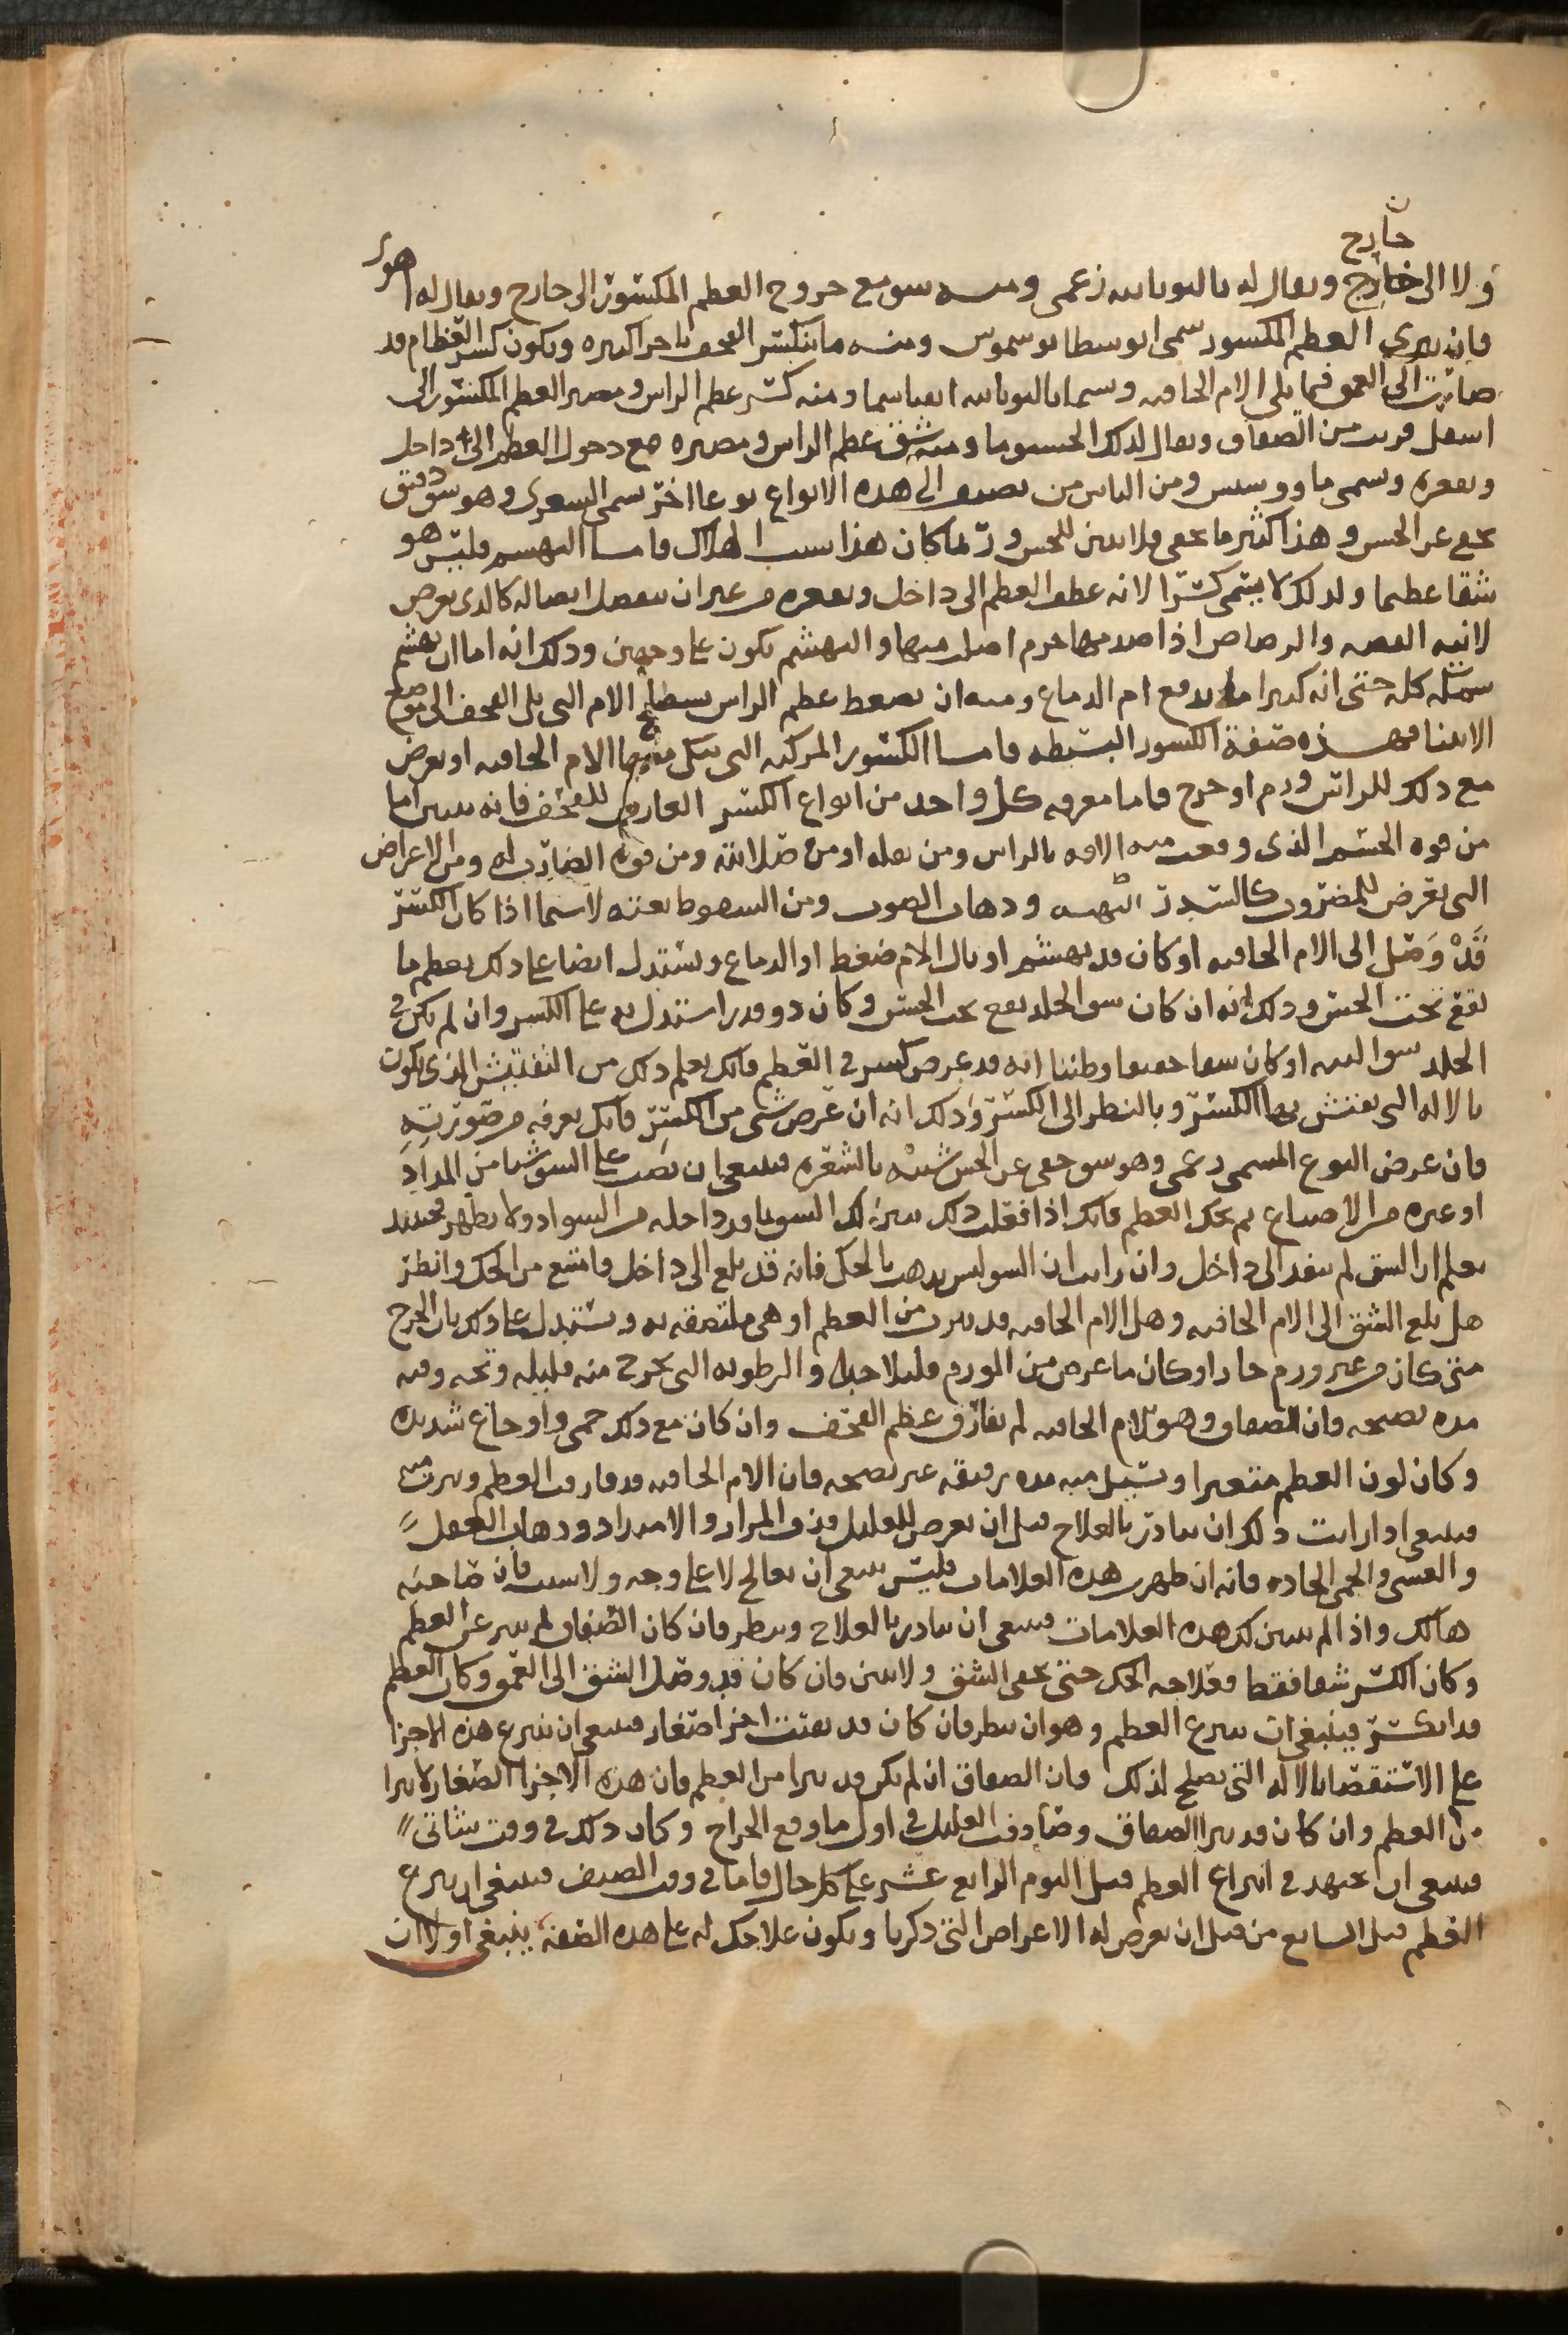 خارج
ولا الى خارج ويقال له باليونانيه زغمى ومنه شق مع خروج العظم المكسور الى خارج ويقال له اهوى
فان يبرى العظم المكسور سمى ابوسطا بوسموس ومنه ما ينكسر القحف باجزا كثيره ويكون كسر العظام قد
صارت الى العمق فيما يلى الام الحافيه وسما باليونانيه ومنه كسر عظم الراس ومصير العظم المكسور الى
اسفل قريب من الصفاق ويقال لذلك ومنه شق عظم الراس ومصيره مع دخول العظم الى داخل
وتقعره وسمى ومن الناس من يضيف الى هذه الانواع نوعا اخر سمى الشعرى وهو شق دقيق
يخفى عن الحس وهذا كثير ما يخفى فلا يتبين للحس وربما كان هذا سبب الهلاك فاما التهشم فليس هو
شقا عظيما ولذلك لا يسمى كسرا لانه عطف العظم الى داخل وتقعره من غير ان ينفصل اتصاله كالذى يعرض
لانيه الفضه والرصاص اذا صدمها جرم اصلب منها والتهشم يكون على وجهين وذلك انه اما ان يهشم
سمكه كله حتى انه كثيرا ما يدفع ام الدماغ ومنه ان يضغط عظم الراس بسطح الام التى يلى القحف الى موضع
الانثنا فهذه صفة الكسور البسيطه فاما الكسور المركبه التى ينكى معها الام الحافيه او يعرض
مع ذلك للراس ورم او جرح فاما معرفه كل واحد من انواع الكسر العارض للقحف فانه يتبين اما
من قوه الجسم الذى وقعت منه الافه بالراس ومن ثقله او من صلابته ومن قوه الضارب له ومن الاعراض
التى تعرض للمضروب كالسدر التهيه وذهاب الصوت ومن السقوط بغته لاسيما اذا كان الكسر
قَدْ وَصَل الى الام الحافيه او كان قد يهشم او نال الام ضغط او الدماغ ويستدل ايضا على ذلك بعظم ما
يقع تحت الحس وذلك انه ان كان شق الجلد يقع تحت الحس وكان ذو قدر استدل به على الكسر وان لم يكن فى
الجلد شق البته او كان شقا خفيفا وظننا انه قد عرض كسر فى العظم فانك تعلم ذلك من التفتيش الذى يكون
بالاله التى يفتش بها الكسر وبالنظر الى الكسر وذلك انه ان عرض شى من الكسر فانك تعرفه من صورته
فان عرض النوع المسمى زغمى وهو شق خفى عن الحس شبيه بالشعره فينبغى ان تصب على الشق شيا من المداد
او غيره من الاصباغ ثم تحك العظم فانك اذا فعلت ذلك تبين لك الشق ما قد داخله من السواد ولا يظهر فحينيذ
تعلم ان الشق لم ينفذ الى داخل وان رايت ان الشق ليس يذهب بالحك فانه قد بلغ الى داخل فامتنع من الحك وانظر
هل بلغ الشق الى الام الحافيه وهل الام الحافيه قد تبرت من العظم او هى ملتصقه به ويستدل على ذلك بان الجرح
متى كان من غير ورم حار او كان ما عرض من الورم قليلا جدا والرطوبه التى تخرج منه قليله وتحه وفيه
مده نضيجه فان الصفاق وهو الام الحافيه لم يفارق عظم القحف وان كان مع ذلك حمى واوجاع شديده
وكان لون العظم متغيرا وتسيل منه مده رقيقه غير نضيجه فان الام الحافيه قد فارقت العظم وتبرت منه
فينبغى اذا رايت ذلك ان تبادر بالعلاج قبل ان يعرض للعليل قذف المرار والامتداد وذهاب العقل
والغشى والحمى الحاده فانه ان ظهرت هذه العلامات فليس ينبغى ان يعالج لا على وجه ولا سبب فان صاحبه
هالك واذا لم يتبين لك هذه العلامات فينبغى ان تبادر بالعلاج وتنظر فان كان الصفاق لم يتبر عن العظم
وكان الكسر شقا فقط فعلاجه الحك حتى يخفى الشق ولا يبين وان كان قد وصل الشق الى العمق وكان العظم
قد انكسر فينبغى ان ينزع العظم وهو ان تنظر فان كان قد تفتت اجزا صغار فينبغى ان تنزع هذه الاجزا
على الاستقصا بالاله التى تصلح لذلك فان الصفاق ان لم يكن قد تبرا من العظم فان هذه الاجزا الصغار لا تبرا
من العظم وان كان قد تبرا الصفاق وصادفت العليل فى اول ما وقع الجراح وكان ذلك فى وقت شاتى
فينبغى ان تجتهد فى انتزاع العظم قبل اليوم الرابع عشر على كل حال فاما فى وقت الصيف فينبغى ان تنزع
العظم قبل السابع من قبل ان يعرض له الاعراض التى ذكرنا ويكون علاجك له على هذه الصفة ينبغى اولا ان